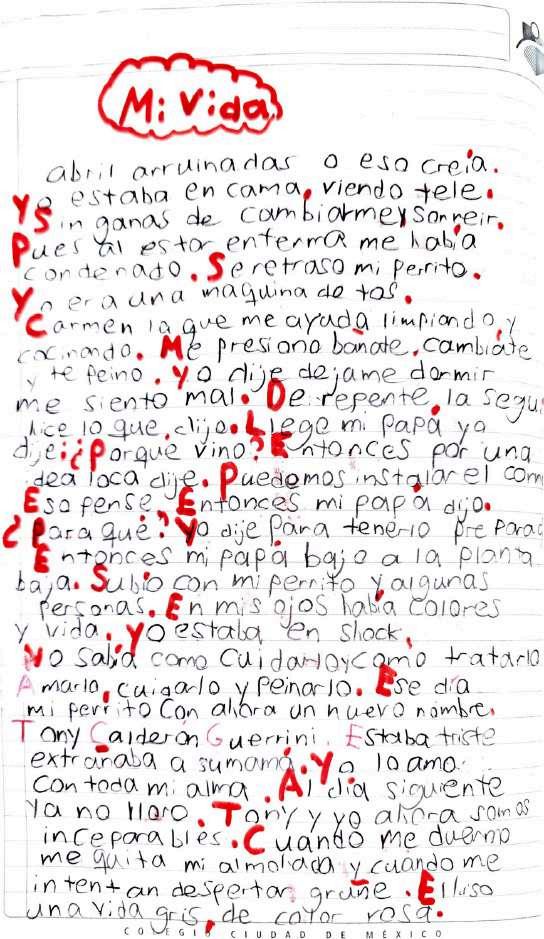 Mi Vida
abril arruinadas o eso creía.
Yo estaba en cama, viendo tele.
Sin ganas de cambiarme y sonreir.
Pues al estar enferma me había
condenado. Se retraso mi perrito.
Yo era una maquina de tos.
Y Carmen la que me ayuda limpiando, y
cocinando. Me presiono bañate, cambiate
y te peino. Yo dije dejame dormir
me siento mal. De repente, la segui
hice lo que, dijo. Llego mi papá yo
dije: ¿Porque vino? Entonces por una
idea loca dije. Puedemos instalar el com
Eso pense, Entonces mi papá dijo.
¿Para que? Yo dije Para tenerlo prepara
Entonces mi papá bajo a la planta
baja. Subio con mi perrito y algunas
personas. En mis ojos había colores
y vida. Yo estaba en shock,
No sabía como cuidarlo y como tratarlo
Amarlo, cuidarlo y Peinarlo. Ese día
mi perrito con ahora un nuevo nombre.
Tony Calderón Guerrini. Estaba triste
extrañaba a su mamá. Yo lo amo
con toda mi alma. Al día siguiente
Ya no lloro. Tony y yo ahora somos
inceparables. Cuando me duermo
me quita mi almohada y cuando me
intentan despertar gruñe. El iso
una vida gris, de color rosa.
COLEGIO CIUDAD DE MÉXICO